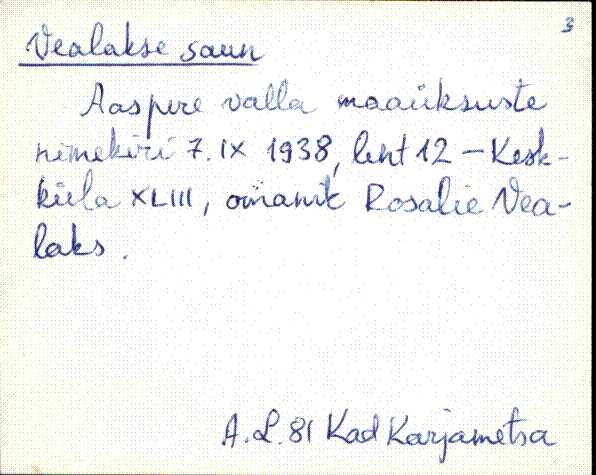 3
Vealakse saun
Aaspere valla maaüksuste
nimekiri 7. IX 1938, leht 12 – Kesk-
küla XLIII, omanik Rosalie Vea-
laks.
A. L. 81 Kad Karjametsa